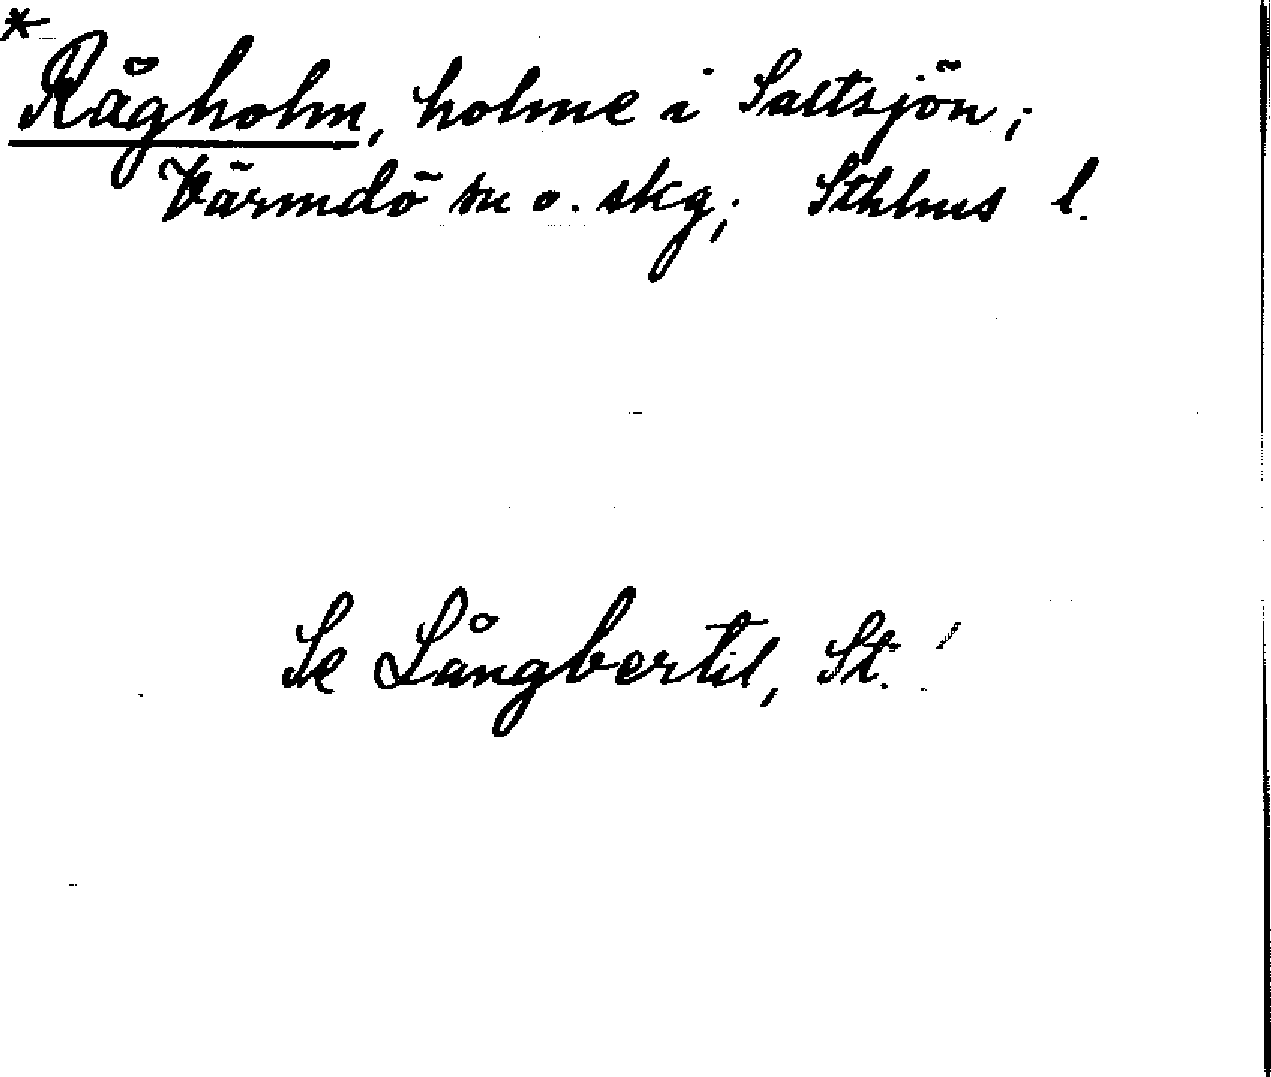 *
Rågholm, holme i Saltsjön;
Värmdö sn o. skg; Sthlms l.
Se Långbertil, St.